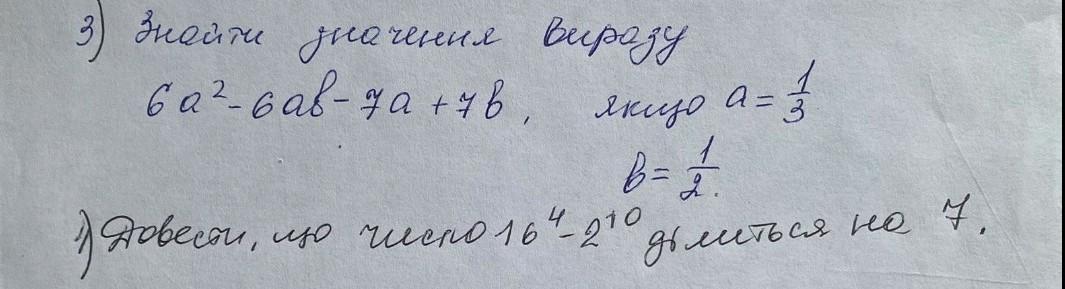 3) Знайти значення виразу
6a² - 6ab - 7a + 7b, якщо a = 1/3
b = 1/2.
4) Довести, що число 16⁴ - 2¹⁰ ділиться на 7.